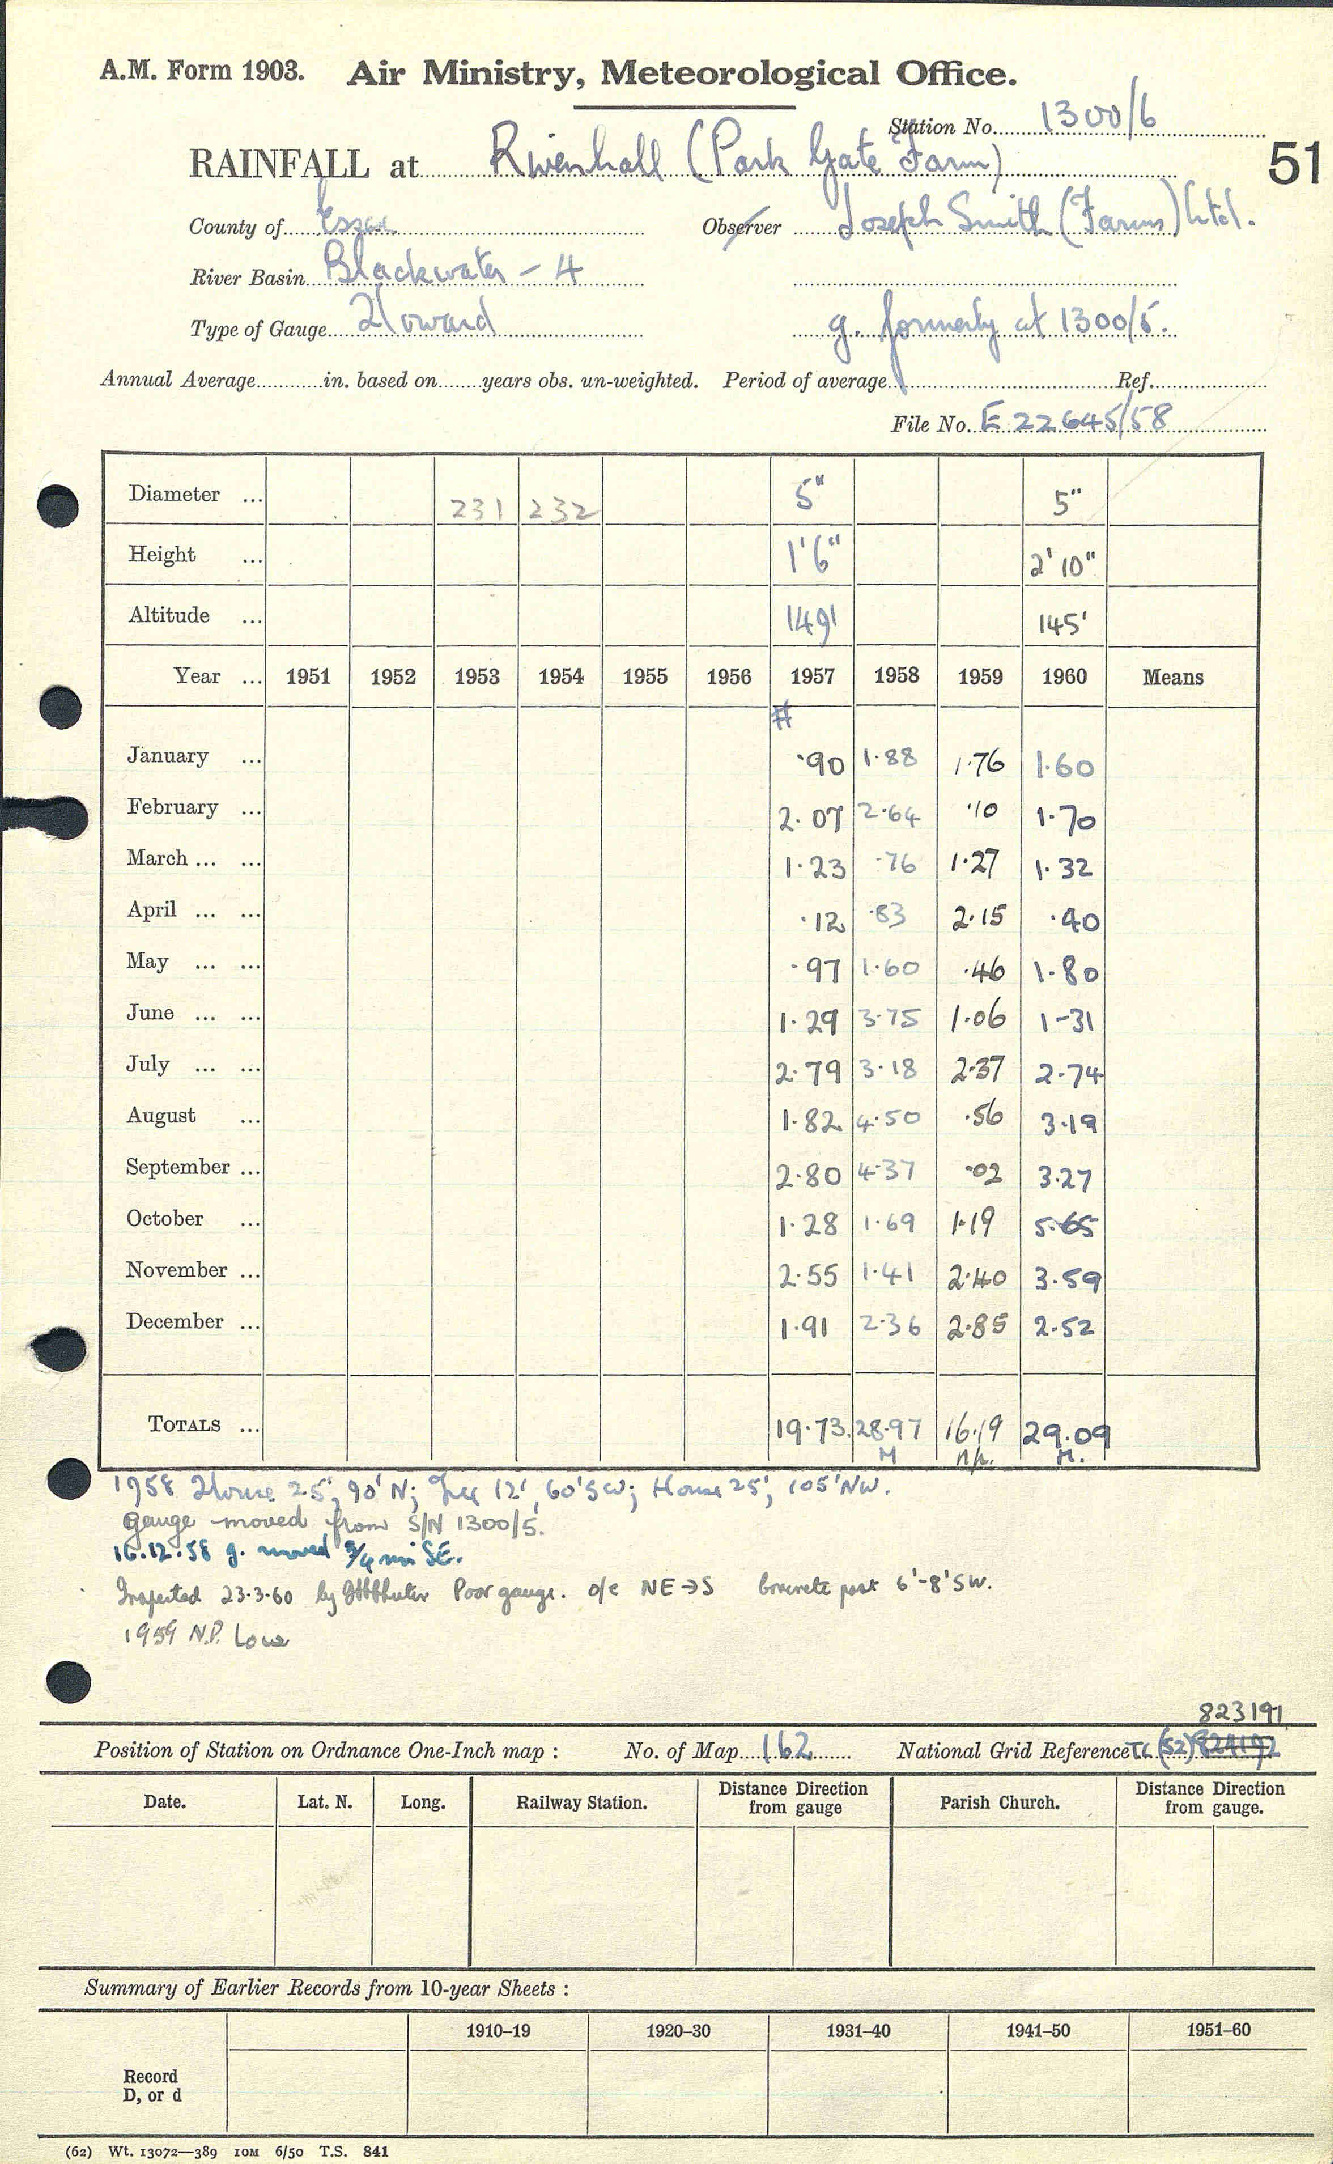 A.M. Form 1903. Air Ministry, Meteorological Office.
Station No. 1300/6
RAINFALL at Rivenhall (Park Gate Farm)
51
County of Essex Observer Joseph Smith (Farms) Ltd.
River Basin Blackwater - 4
Type of Gauge Howard g. formerly at 1300/5.
Annual Average in. based on years obs. un-weighted. Period of average Ref.
File No. E 22645/58
Diameter ... 231 232 5" 5"
Height ... 1'6" 2'10"
Altitude ... 149' 145'
Year ... 1951 1952 1953 1954 1955 1956 1957 1958 1959 1960 Means
#
January ... ·90 1·88 1·76 1·60
February ... 2·07 2·64 ·10 1·70
March ... ... 1·23 ·76 1·27 1·32
April ... ... ·12 ·83 2·15 ·40
May ... ... ·97 1·60 ·46 1·80
June ... ... 1·29 3·75 1·06 1-31
July ... ... 2·79 3·18 2·37 2·74
August ... 1·82 4·50 ·56 3·19
September ... 2·80 4·37 ·02 3·27
October ... 1·28 1·69 1·19 5·65
November ... 2·55 1·41 2·40 3·59
December ... 1·91 2·36 2·85 2·52
TOTALS ... 19·73 28·97 16·19 29·09
M M.
1958 House 25', 90' N; Tree 12', 60' SW; House 25', 105' NW.
Gauge moved from S/N 1300/5.
16.12.58 g. moved 3/4 mi SE.
Inspected 23·3·60 by Poor gauge. o/e NE→S Concrete post 6'-8' SW.
1959 N.P. Low
823191
Position of Station on Ordnance One-Inch map : No. of Map 162 National Grid Reference TL (52) 824192
Date. Lat. N. Long. Railway Station. Distance Direction from gauge Parish Church. Distance Direction from gauge.
Summary of Earlier Records from 10-year Sheets :
1910–19 1920–30 1931–40 1941–50 1951–60
Record
D, or d
(62) Wt. 13072—389 10M 6/50 T.S. 841